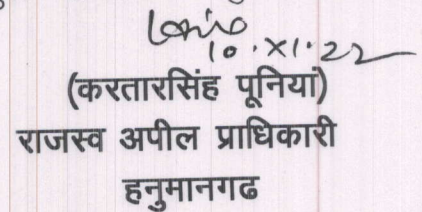 10.XI.22
(करतारसिंह पूनियां)
राजस्व अपील प्राधिकारी
हनुमानगढ